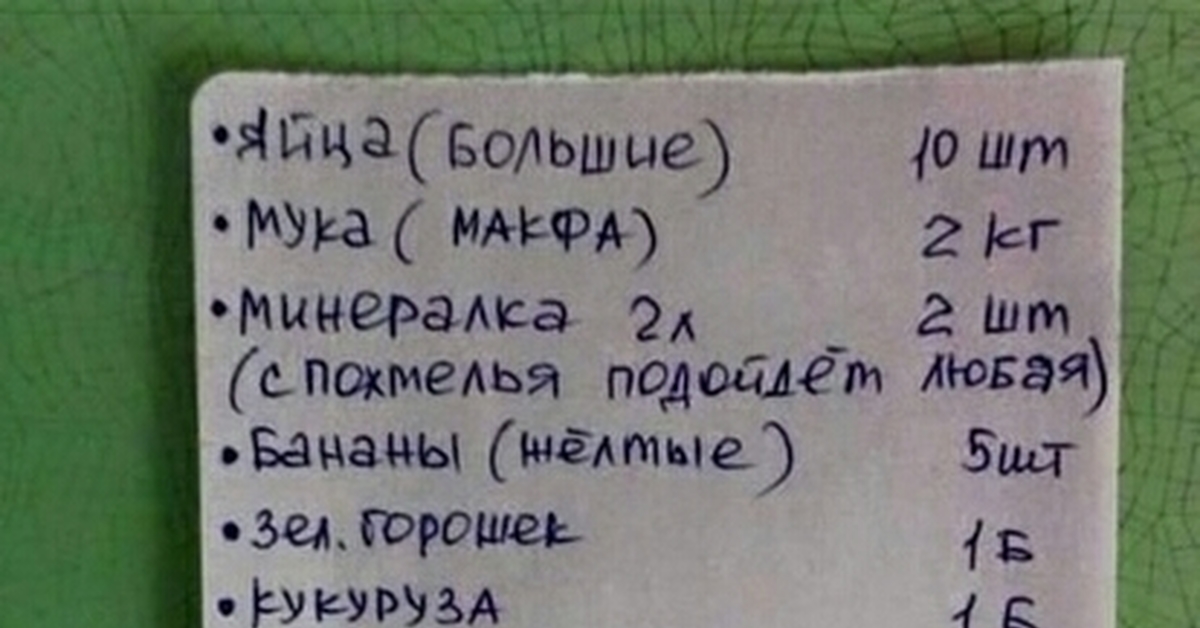 •Яйца (Большие) 10 шт
•Мука ( МАКФА) 2 кг
•Минералка 2л 2 шт
(с похмелья подойдёт любая)
•Бананы (жёлтые) 5шт
•Зел. горошек 1 Б
•Кукуруза 1 Б